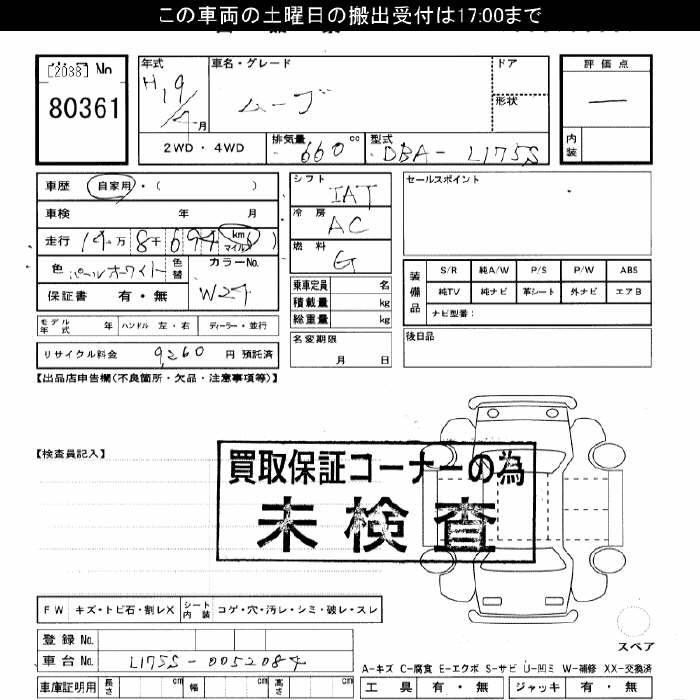 この車両の土曜日の搬出受付は17:00まで
[2038] No
80361
年式 車名・グレード ドア 評価点
H19/4月 ムーブ 形状 —
2WD・4WD 排気量 660 cc 型式 DBA- L175S 内装
車歴 自家用・( ) シフト IAT セールスポイント
車検 年 月 冷房 AC
走行 14万8千694 km マイル ) 燃料 G
色 パールホワイト 色替 カラーNo. W24
保証書 有・無
乗車定員 名
積載量 kg
総重量 kg
装備品 S/R 純A/W P/S P/W ABS
純TV 純ナビ 革シート 外ナビ エアB
ナビ型番:
モデル年式 年 ハンドル 左・右 ディーラー・並行
名変期限 月 日
後日品
リサイクル料金 9,260 円 預託済
【出品店申告欄(不良箇所・欠品・注意事項等)】
【検査員記入】
買取保証コーナーの為
未検査
FW キズ・トビ石・割レX シート内装 コゲ・穴・汚レ・シミ・破レ・スレ
スペア
登録 No.
車台 No. L175S-0052084
A-キズ C-腐食 E-エクボ S-サビ U-凹ミ W-補修 XX-交換済
車庫証明用 長さ cm 幅 cm 高さ cm 工具 有・無 ジャッキ 有・無